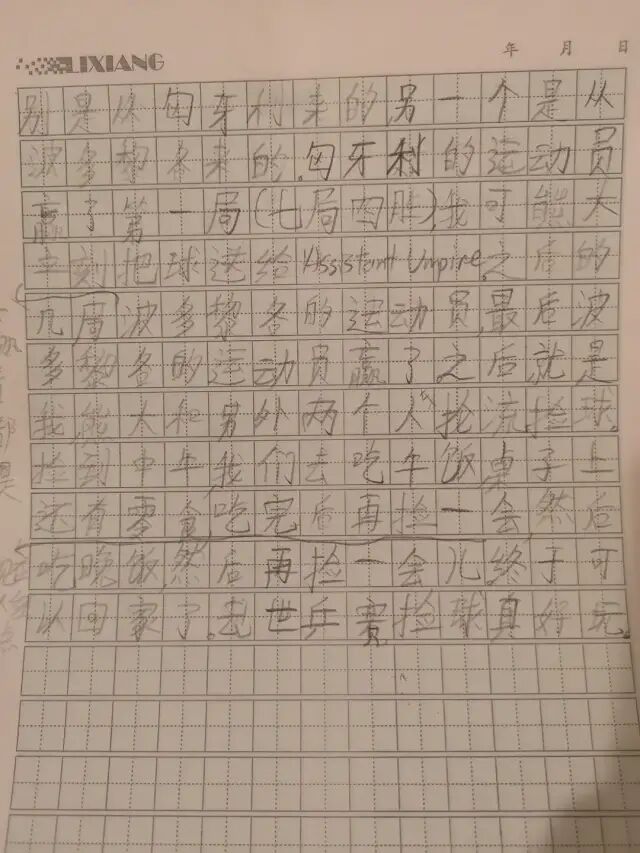 LIXIANG
年 月 日
别是从匈牙利来的,另一个是从
波多黎各来的.匈牙利的运动员
赢了第一局(七局四胜),我可能大
辛刻把球送给Assistant Umpire.之后的
几局波多黎各的运动员,最后波
多黎各的运动员赢了.之后就是
我熊大和另外两个人抡流捡球.
捡到中午,我们去吃午饭,桌子上
还有零食,吃完后再捡一会,然后
吃晚饭,然后再捡一会儿,终于可
以回家了.去世乒赛捡球真好玩.